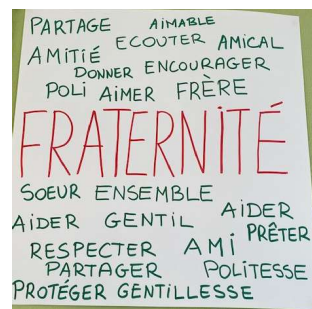 PARTAGE AiMABLE
AMiTiÉ ECOUTER AMiCAL
DONNER ENCOURAGER
POLi AiMER FRÈRE
FRATERNITÉ
SOEUR ENSEMBLE
AiDER GENTiL AiDER
PRÊTER
RESPECTER AMi
PARTAGER POLiTESSE
PROTÉGER GENTiLLESSE